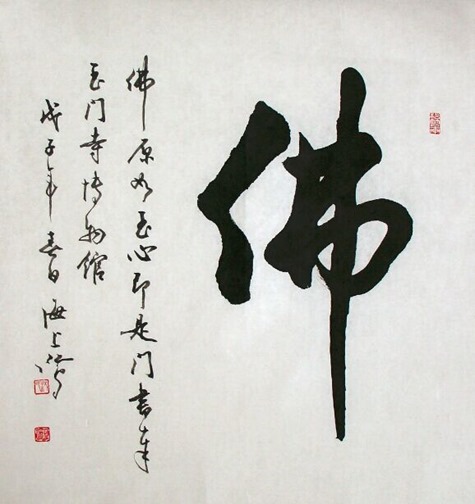 佛
佛原为玉心即是门书奉
玉门寺博物馆
戊子年春日海上